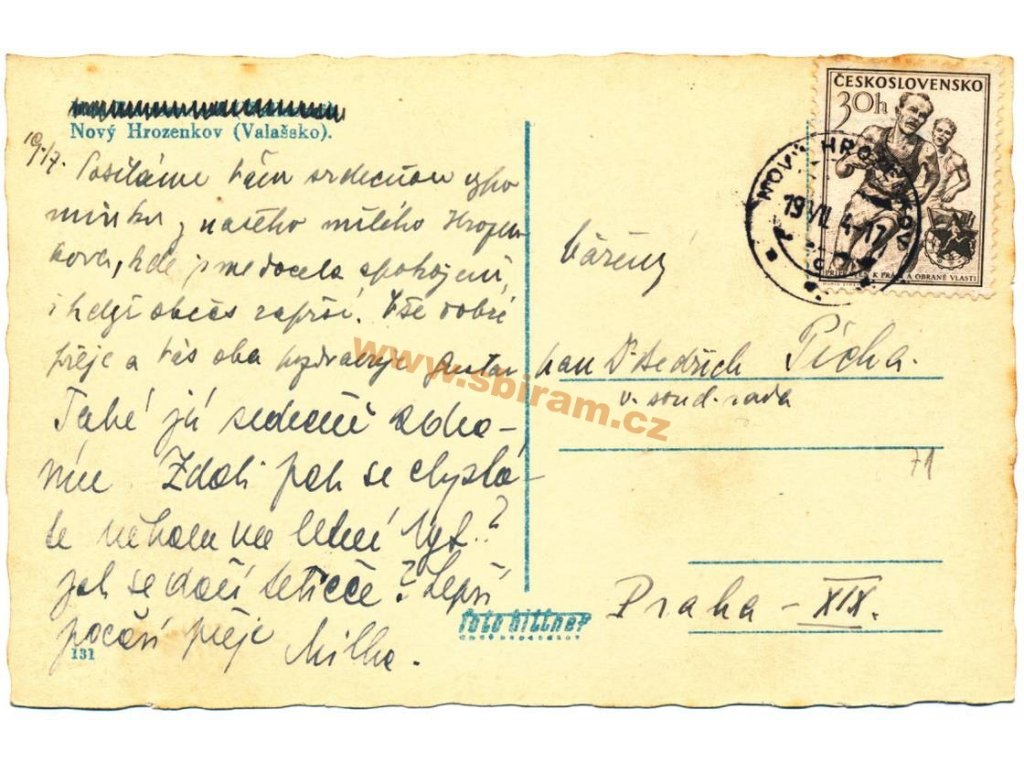 Nový Hrozenkov (Valašsko).
19./7. Posíláme Vám srdečnou vzpo
mínku z našeho milého Hrozen
kova, kde jsme docela spokojeni,
i když občas zaprší. Vše dobré
přeje a Vás oba pozdravuje
Také já srdečně vzpo-
Zdali pak se chystá-
te někam na letní byt?
Jak se daří tetičce? Lepší
počasí přeje Milka.
131
foto bittner
ČESKOSLOVENSKO
30h
PŘIPRAVEN K PRÁCI A OBRANĚ VLASTI
NOVÝ HROZENKOV
19 VII
Vážený
pan Dr Bedřich Pícha.
v. soud. rada
71
Praha - XIX.
www.sbiram.cz